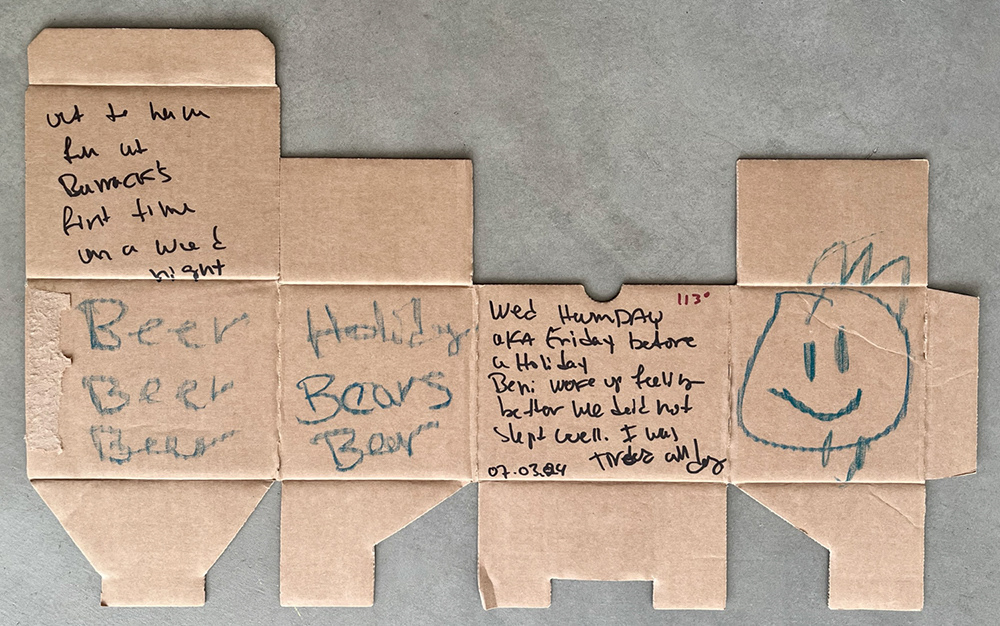 out to have
fun at
Barrack's
first time
on a week
night
Beer
Beer
Beer
Holiday
Bears
Beer
113°
Wed HumpDAY
AKA Friday before
a Holiday
Beni woke up feeling
better we did not
slept well. I was
tired all day
07.03.24